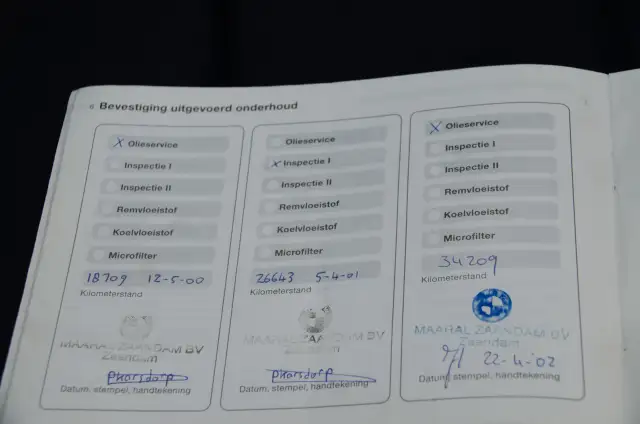 6 Bevestiging uitgevoerd onderhoud
X Olieservice
Inspectie I
Inspectie II
Remvloeistof
Koelvloeistof
Microfilter
18709 12-5-00
Kilometerstand
MAARAL ZAANDAM BV
Zaandam
Datum, stempel, handtekening
Olieservice
X Inspectie I
Inspectie II
Remvloeistof
Koelvloeistof
Microfilter
26643 5-4-01
Kilometerstand
MAARAL ZAANDAM BV
Zaandam
Datum, stempel, handtekening
X Olieservice
Inspectie I
Inspectie II
Remvloeistof
Koelvloeistof
Microfilter
34209
Kilometerstand
MAARAL ZAANDAM BV
Zaandam
22-4-'02
Datum, stempel, handtekening